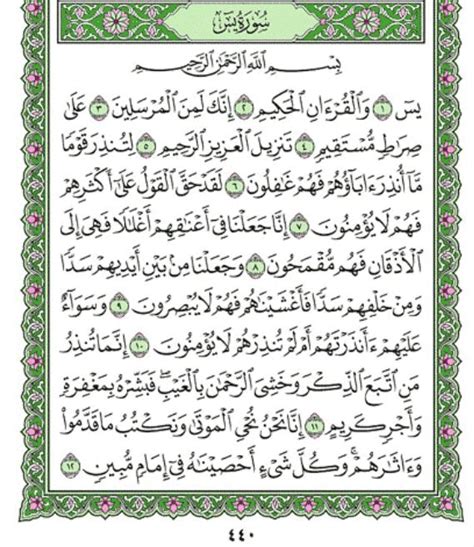 سُورَةُ يسٓ
بِسْمِ ٱللَّهِ ٱلرَّحْمَٰنِ ٱلرَّحِيمِ
يسٓ ١ وَٱلْقُرْءَانِ ٱلْحَكِيمِ ٢ إِنَّكَ لَمِنَ ٱلْمُرْسَلِينَ ٣ عَلَىٰ
صِرَٰطٍ مُّسْتَقِيمٍ ٤ تَنزِيلَ ٱلْعَزِيزِ ٱلرَّحِيمِ ٥ لِتُنذِرَ قَوْمًا
مَّآ أُنذِرَ ءَابَآؤُهُمْ فَهُمْ غَٰفِلُونَ ٦ لَقَدْ حَقَّ ٱلْقَوْلُ عَلَىٰٓ أَكْثَرِهِمْ
فَهُمْ لَا يُؤْمِنُونَ ٧ إِنَّا جَعَلْنَا فِىٓ أَعْنَٰقِهِمْ أَغْلَٰلًا فَهِىَ إِلَى
ٱلْأَذْقَانِ فَهُم مُّقْمَحُونَ ٨ وَجَعَلْنَا مِنۢ بَيْنِ أَيْدِيهِمْ سَدًّا
وَمِنْ خَلْفِهِمْ سَدًّا فَأَغْشَيْنَٰهُمْ فَهُمْ لَا يُبْصِرُونَ ٩ وَسَوَآءٌ
عَلَيْهِمْ ءَأَنذَرْتَهُمْ أَمْ لَمْ تُنذِرْهُمْ لَا يُؤْمِنُونَ ١٠ إِنَّمَا تُنذِرُ
مَنِ ٱتَّبَعَ ٱلذِّكْرَ وَخَشِىَ ٱلرَّحْمَٰنَ بِٱلْغَيْبِ ۖ فَبَشِّرْهُ بِمَغْفِرَةٍ
وَأَجْرٍ كَرِيمٍ ١١ إِنَّا نَحْنُ نُحْىِ ٱلْمَوْتَىٰ وَنَكْتُبُ مَا قَدَّمُوا۟
وَءَاثَٰرَهُمْ ۚ وَكُلَّ شَىْءٍ أَحْصَيْنَٰهُ فِىٓ إِمَامٍ مُّبِينٍ ١٢
٤٤٠